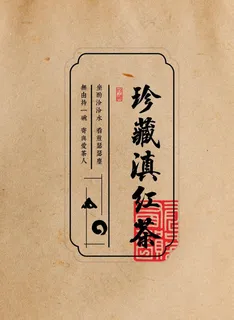 珍藏滇红茶
坐酌泠泠水 看煎瑟瑟塵
無由持一碗 寄與愛茶人